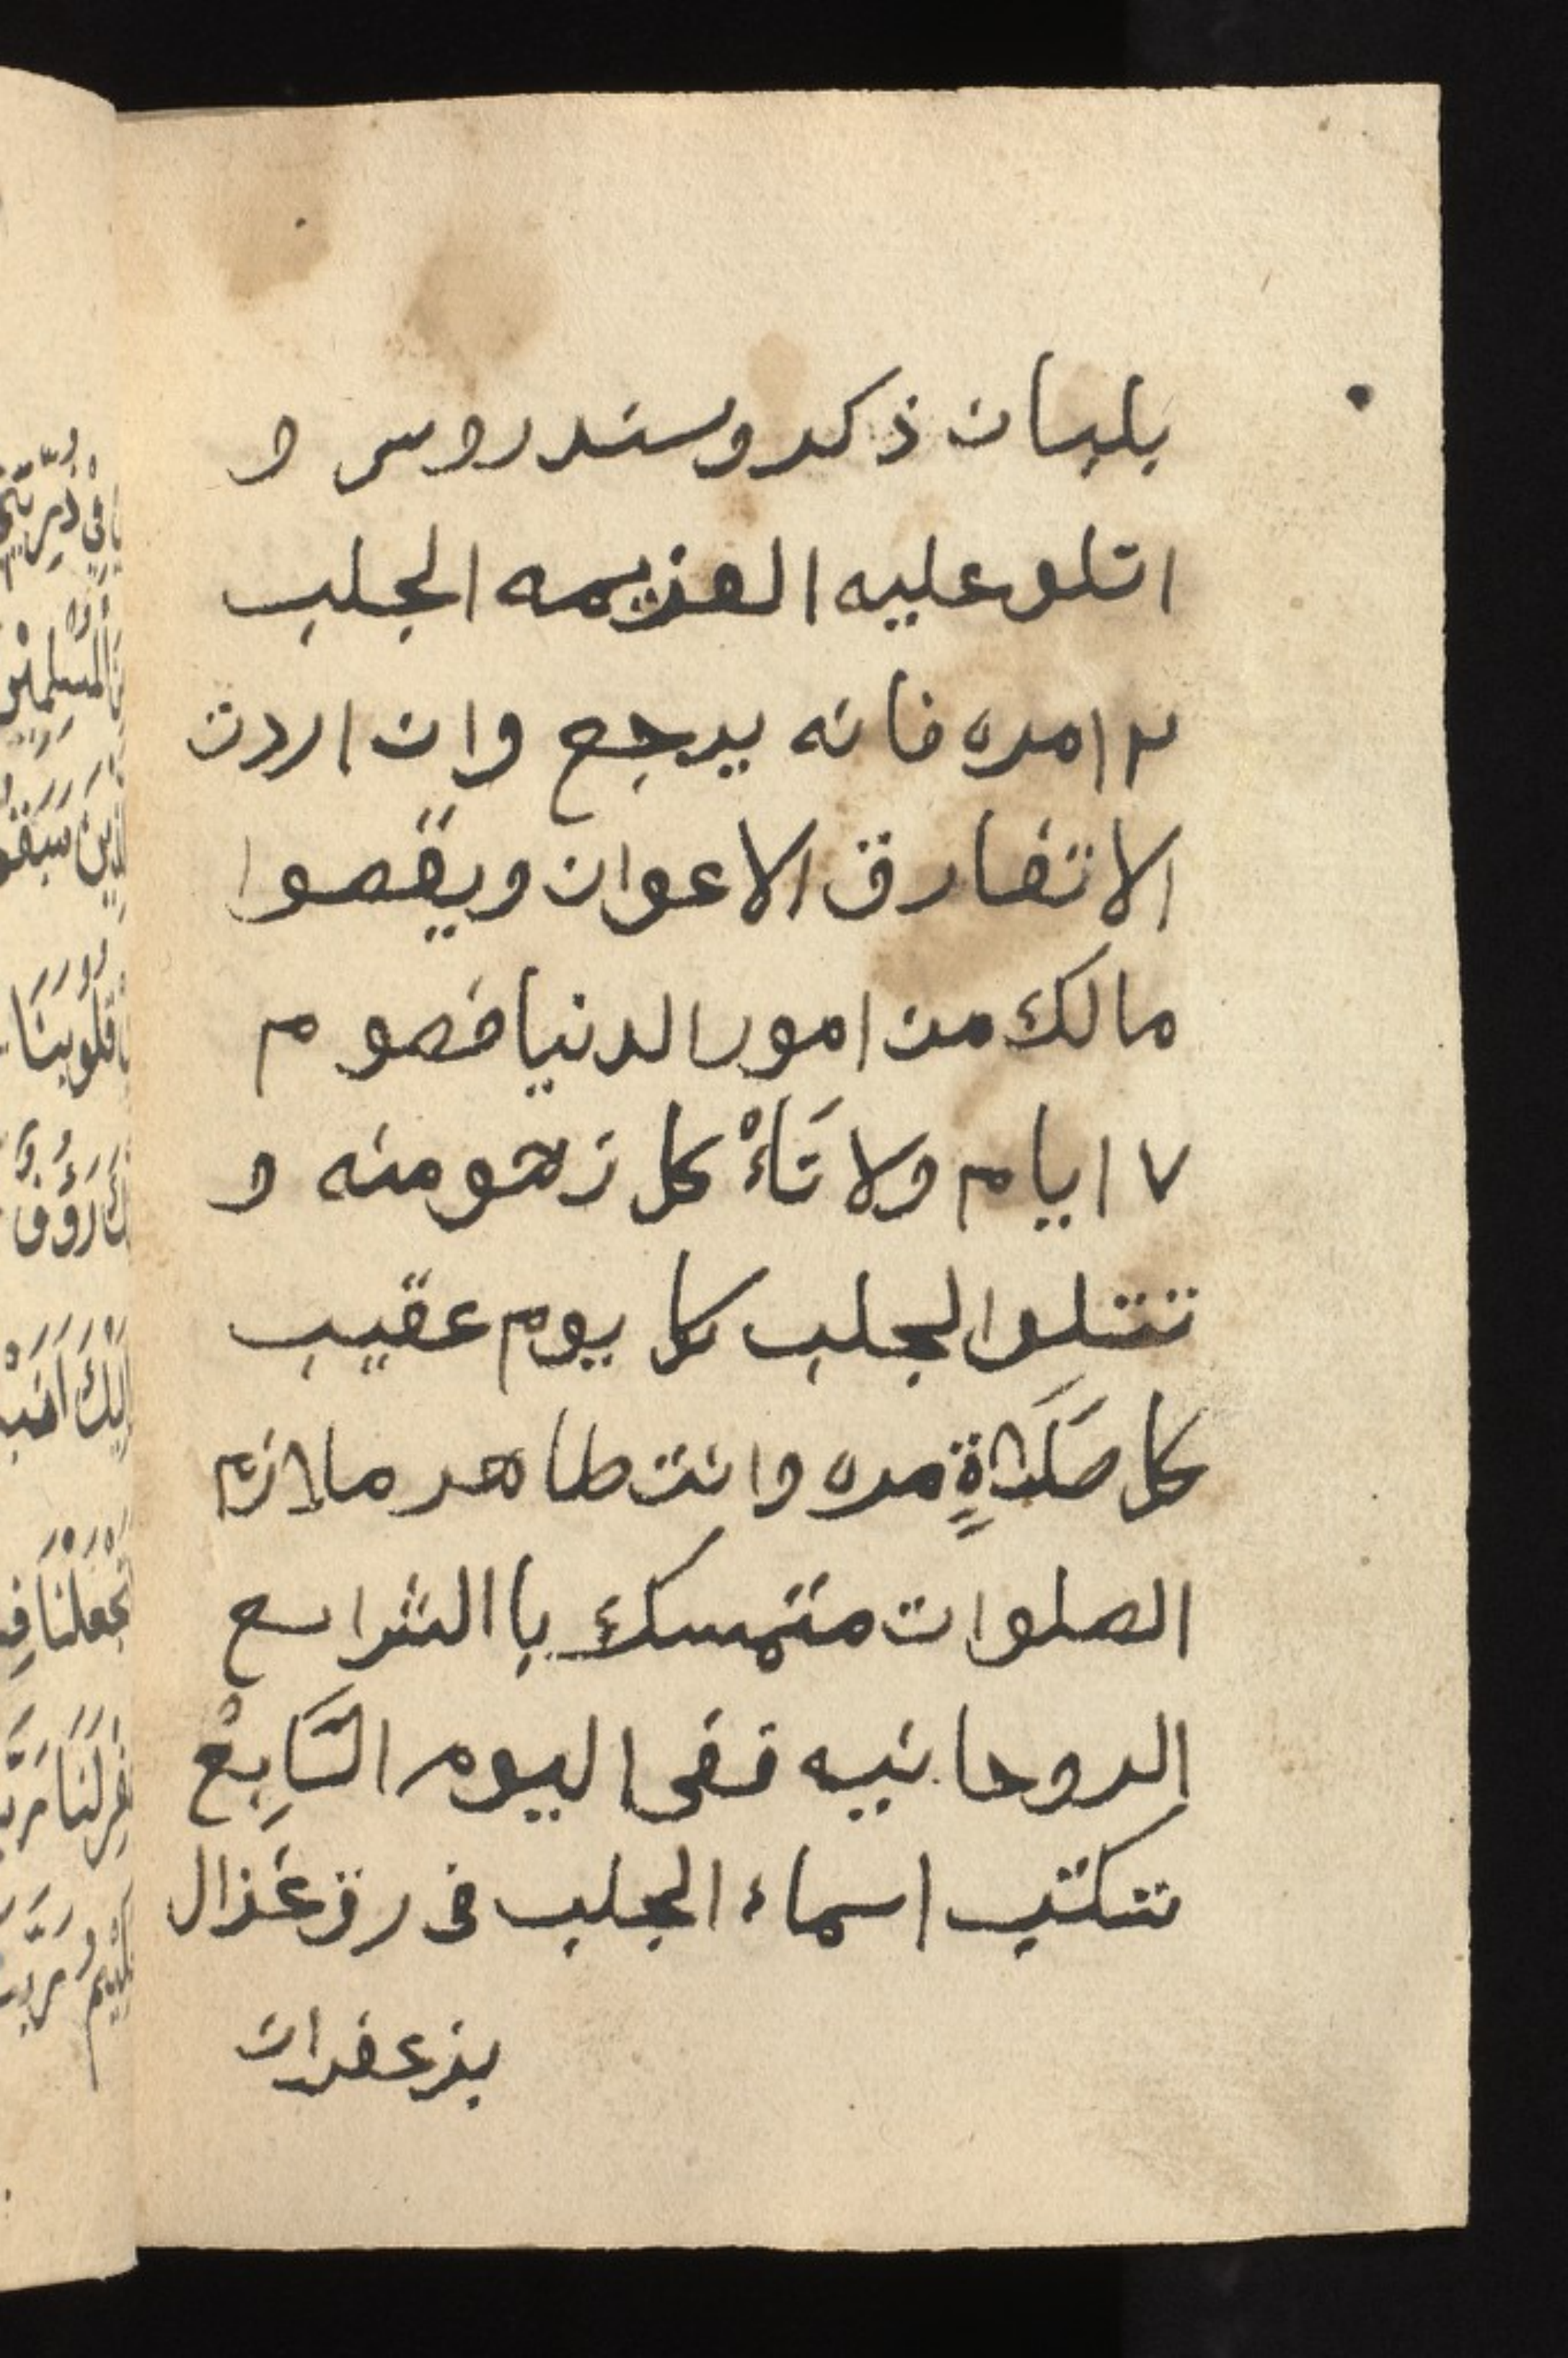 بلبان ذكر وسندروس و
اتلو عليه العزيمه الجلب
٢١ مره فانه يرجع وان اردت
الاتفارق الاعوان ويقصوا
مالك من امور الدنيا فصوم
٧ ايام ولا تَاءْكل زهومنه و
تتلوا الجلب كل يوم عقيب
كل صَلَاةٍ مره وانت طاهر ملازم
الصلوات متمسك با الشرايع
الروحانيه ففى اليوم السَّابِعْ
تكتب اسماء الجلب فى رق غزال
بزعفران